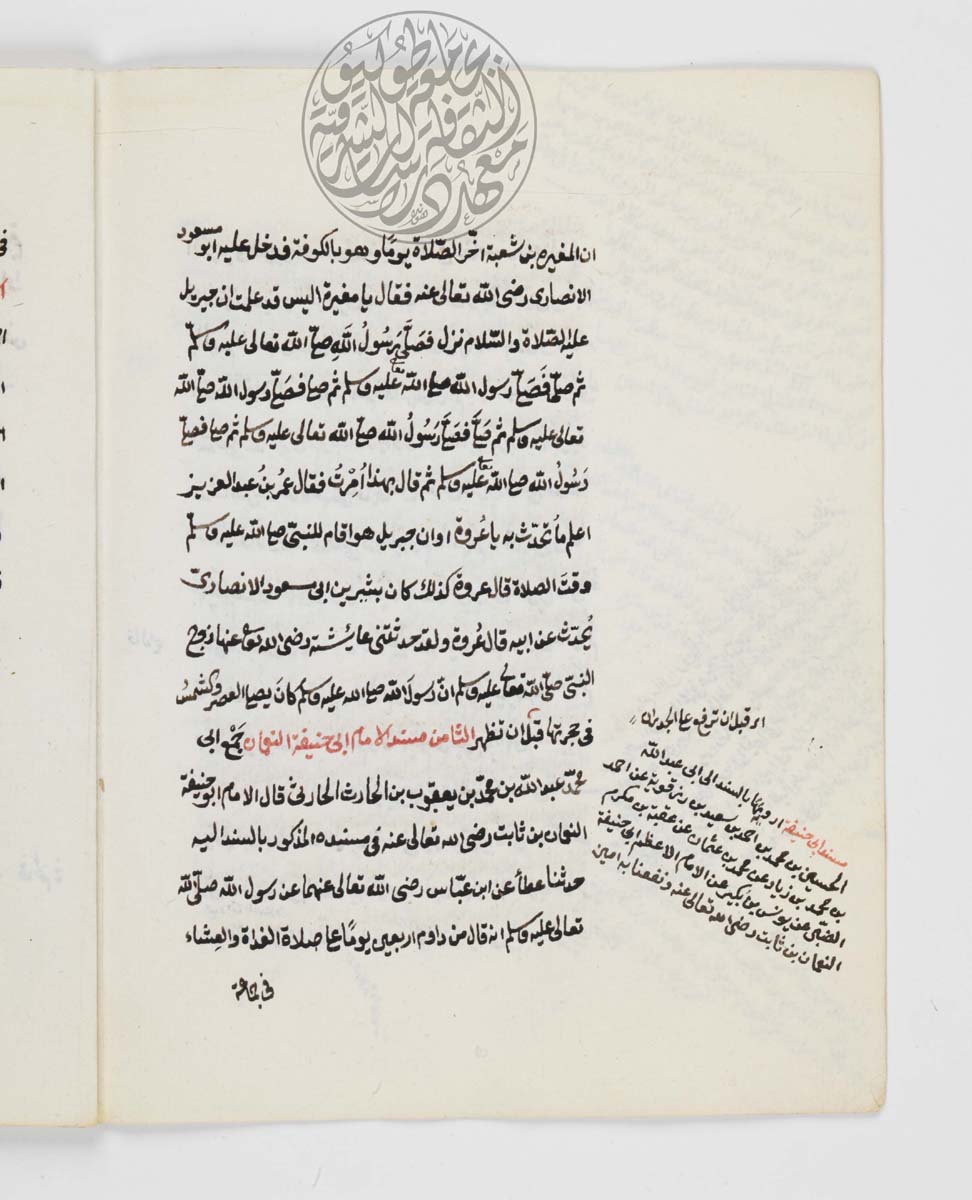 ان المغيرة بن شعبة اخّر الصّلاة يومًا وهو بالكوفة فدخل عليه ابو مسعود
الانصارى رضى الله تعالى عنه فقال يا مغيرة اليس قد علمت ان جبريل
عليه الصّلاة والسّلام نزل فصَلّى رَسُولُ اللّهِ صلّى الله تعالى عليه وسلّم
ثم صلّى فَصَلّى رسول الله صلى الله تعالى عليه وسلم ثم صلى فصَلّى رسول الله صلّى الله
تعالى عليه وسلم ثم صَلّى فصَلّى رَسُولُ الله صلّى الله تعالى عليه وسلم ثم صلى فصلّى
رَسُولُ الله صلى الله تعالى عليه وسلم ثم قال بهذا اُمِرْتُ فقال عمرُ بنُ عبد العزيز
اعلم مَا تُحدّث به يا عُروة اوان جبريل هو اقام للنبىّ صلى الله عليه وسلّم
وقتَ الصلاة قال عروة كذلك كان بشير بن ابى مسعود الانصارىّ
يُحدّث عن ابيه قال عُروة ولقد حدثتنى عايشة رضى الله تعالى عنها زوج
النبىّ صلّى الله تعالى عليه وسلم انّ رسولَ الله صلى الله عليه وسلم كانَ يصلى العصر والشمسُ
فى حجرتها قبل ان تظهر الثامن مسند الامام ابى حنيفة النعمان جمْع ابى
محمّد عبد الله بن محمّد بن يعقوب بن الحارث الحارثى قال الامام ابو حنيفة
النعمان بن ثابت رضى الله تعالى عنه فى مسنده المذكور بالسند اليه
حدثنا عطاء عن ابن عبّاس رضى الله تعالى عنهما عن رسول الله صلّى الله
تعالى عليه وسلم انه قال من داوم اربعين يومًا على صلاة الغداة والعِشاء
فى جماعة
اى قبل ان ترفع على الجدران
مسند ابى حنيفة ارويها بالسند الى ابى عبد الله
الحسين بن محمد بن احمد بن سعيد بن رزقوية عن احمد
بن محمد بن زياد عن محمد بن عثمان عن عقبة بن مكرم
الضبّى عن يونس بن بكير عن الامام الاعظم ابى حنيفة
النعمان بن ثابت رضى الله تعالى عنه ونفعنا به امين